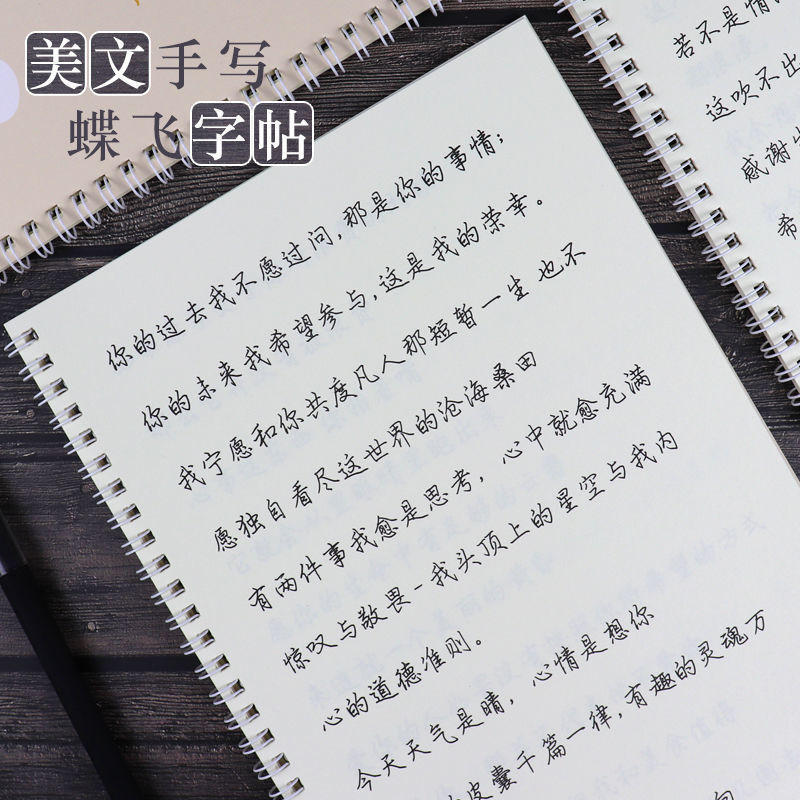 美文手写
蝶飞字帖
你的过去我不愿过问,那是你的事情;
你的未来我希望参与,这是我的荣幸。
我宁愿和你共度凡人那短暂一生 也不
愿独自看尽这世界的沧海桑田
有两件事我愈是思考,心中就愈充满
惊叹与敬畏-我头顶上的星空与我内
心的道德准则。
今天天气是晴,心情是想你
皮囊千篇一律,有趣的灵魂万
若不是情
这吹不出
感谢
希